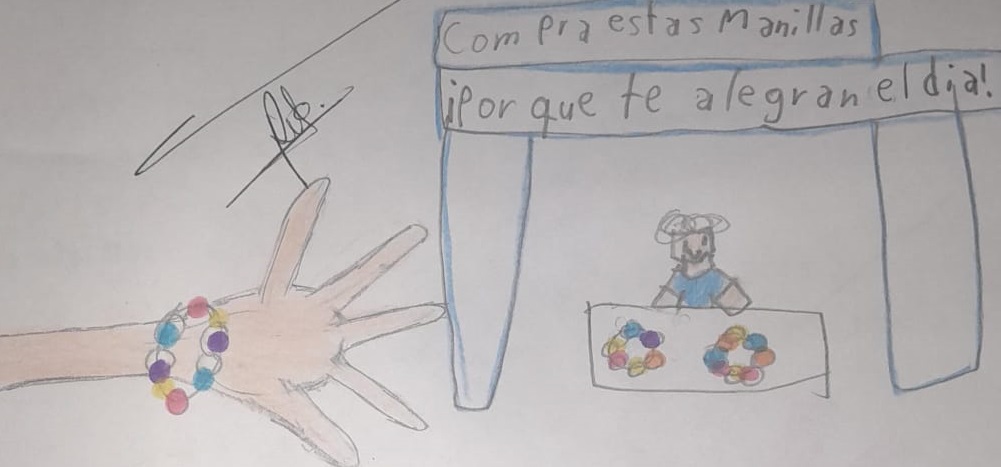 Compra estas manillas
¡Por que te alegran el dia!